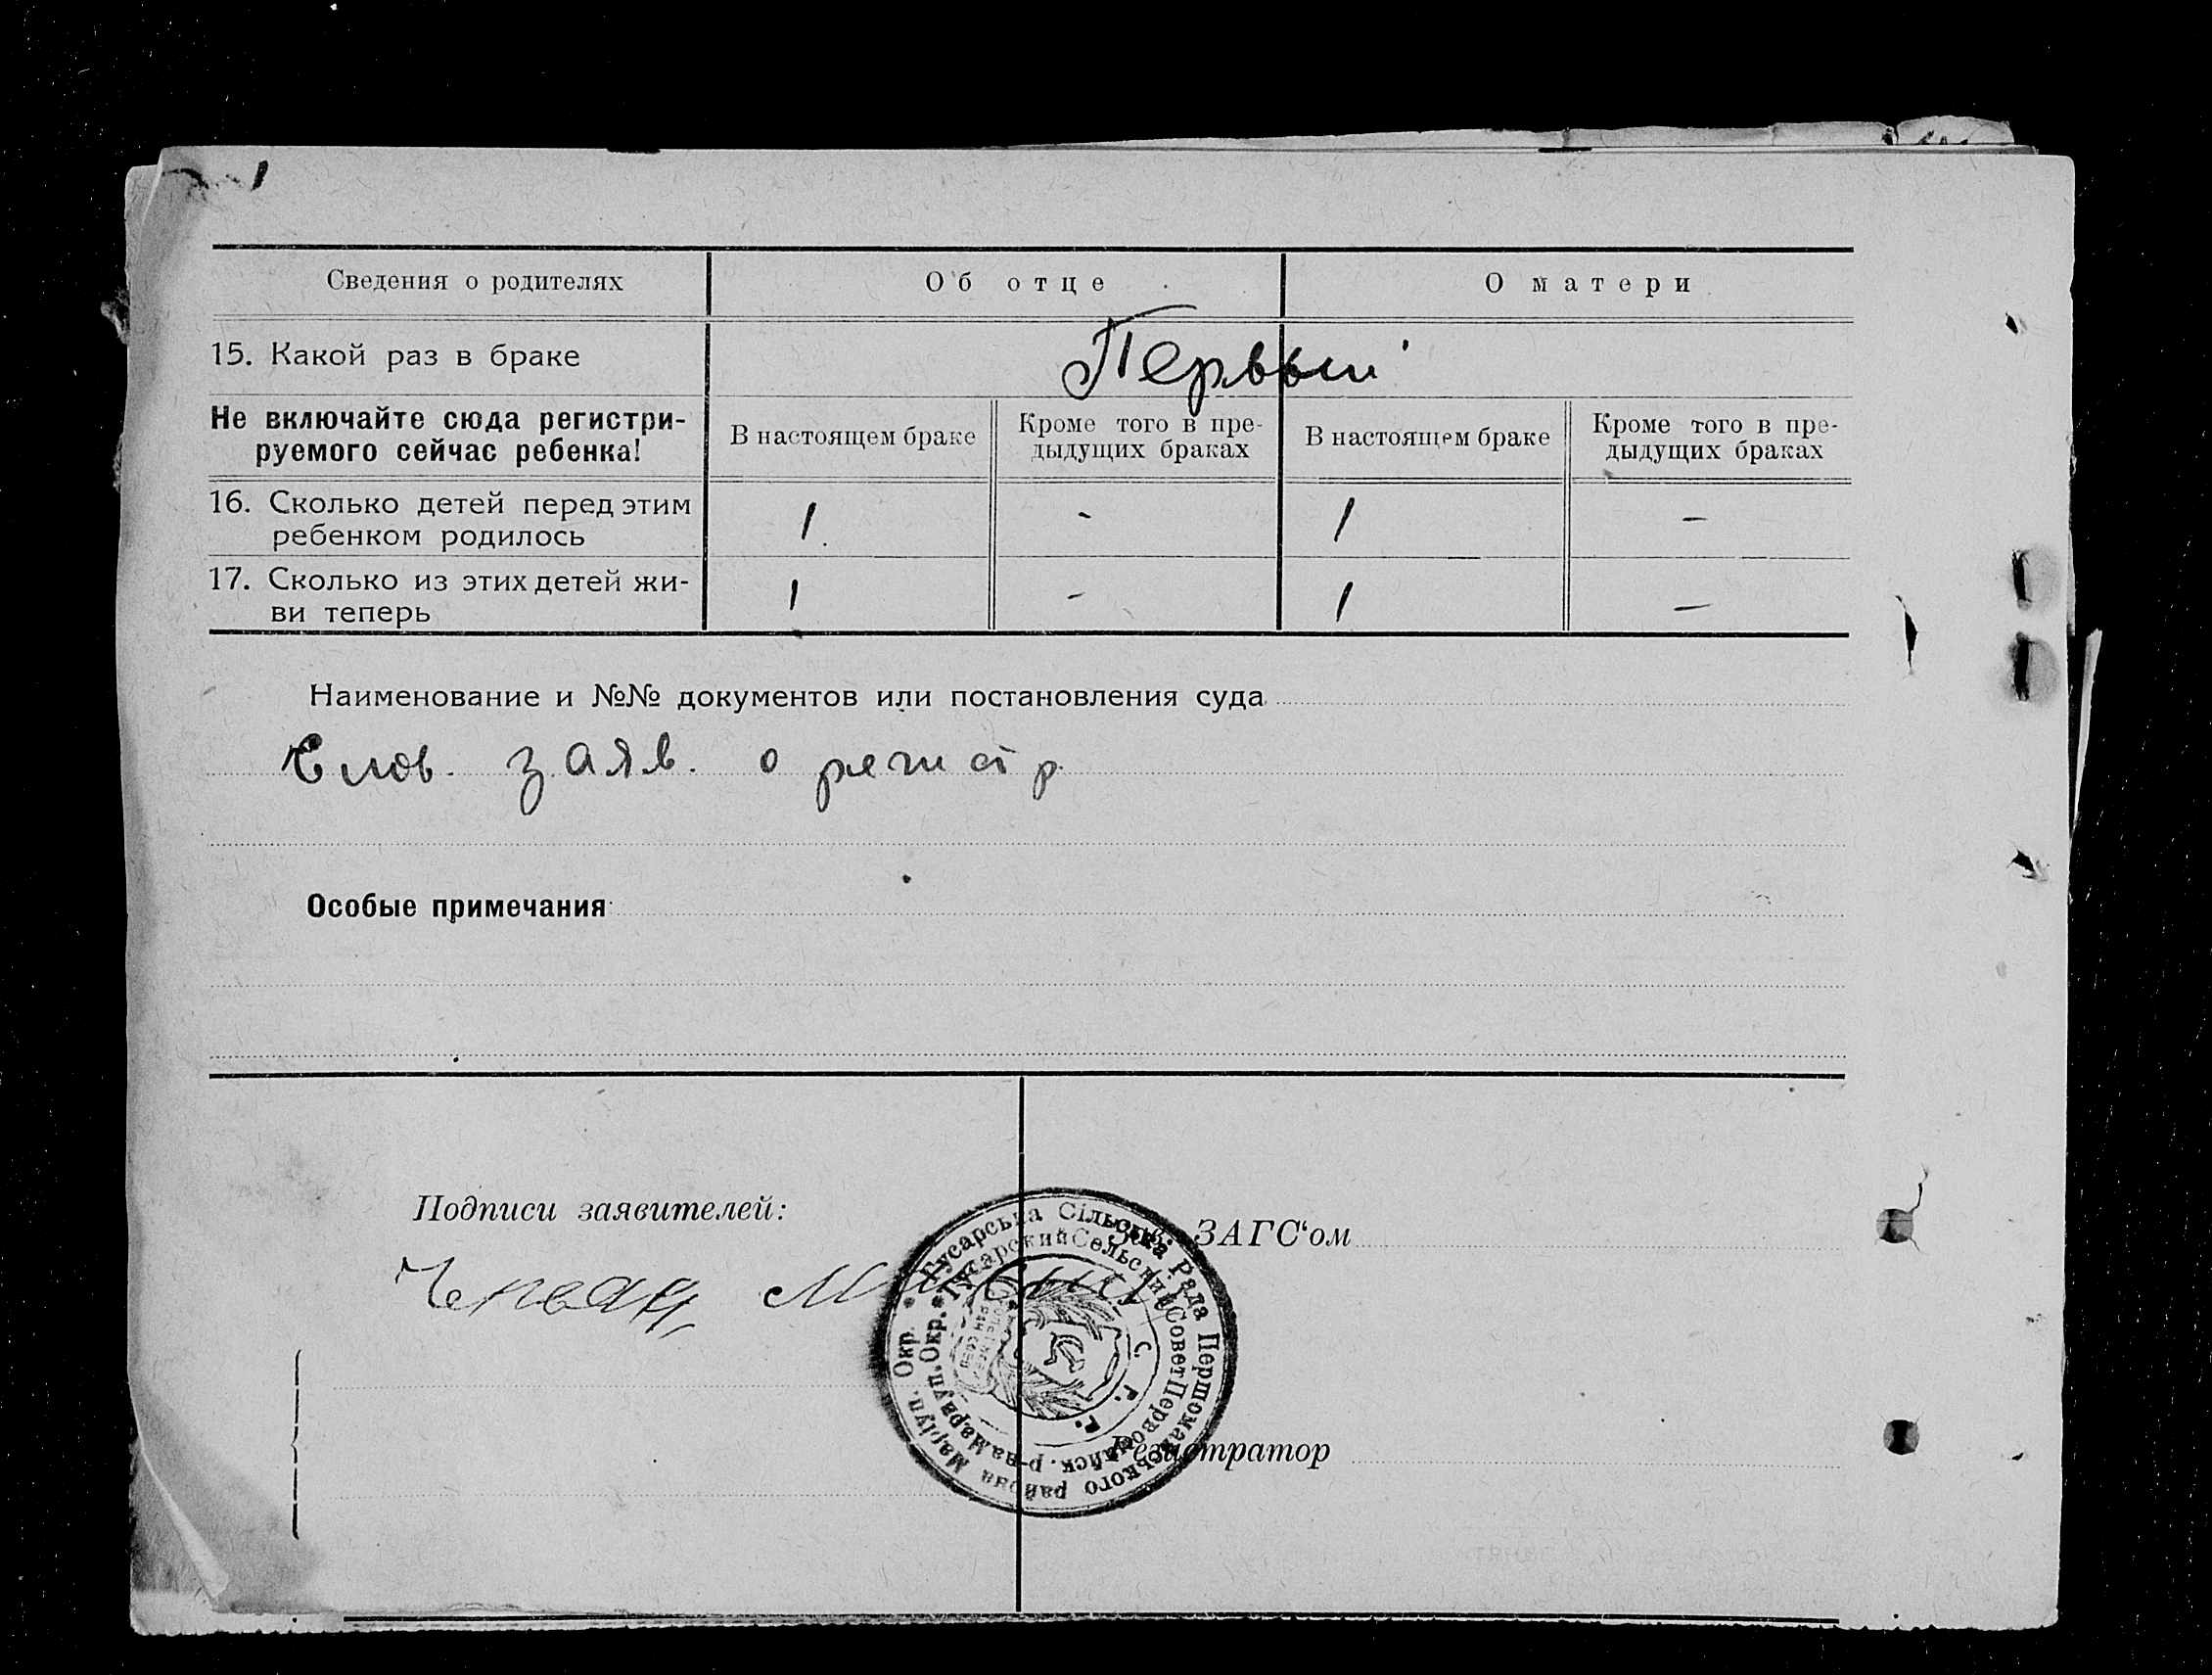 Сведения о родителях
Об отце
О матери
15. Какой раз в браке
Первый
Не включайте сюда регистри-
руемого сейчас ребенка!
В настоящем браке
Кроме того в пре-
дыдущих браках
В настоящем браке
Кроме того в пре-
дыдущих браках
16. Сколько детей перед этим
ребенком родилось
1
-
1
-
17. Сколько из этих детей жи-
ви теперь
1
-
1
-
Наименование и №№ документов или постановления суда
заяв. о регистр.
Особые примечания
Подписи заявителей:
Зав. ЗАГС‘ом
Регистратор
* Гусарська Сільська Рада Першомайського района Маріуп. Окр.
* Гусарский Сельский Совет Первомайск. р-на Мариуп. Окр.